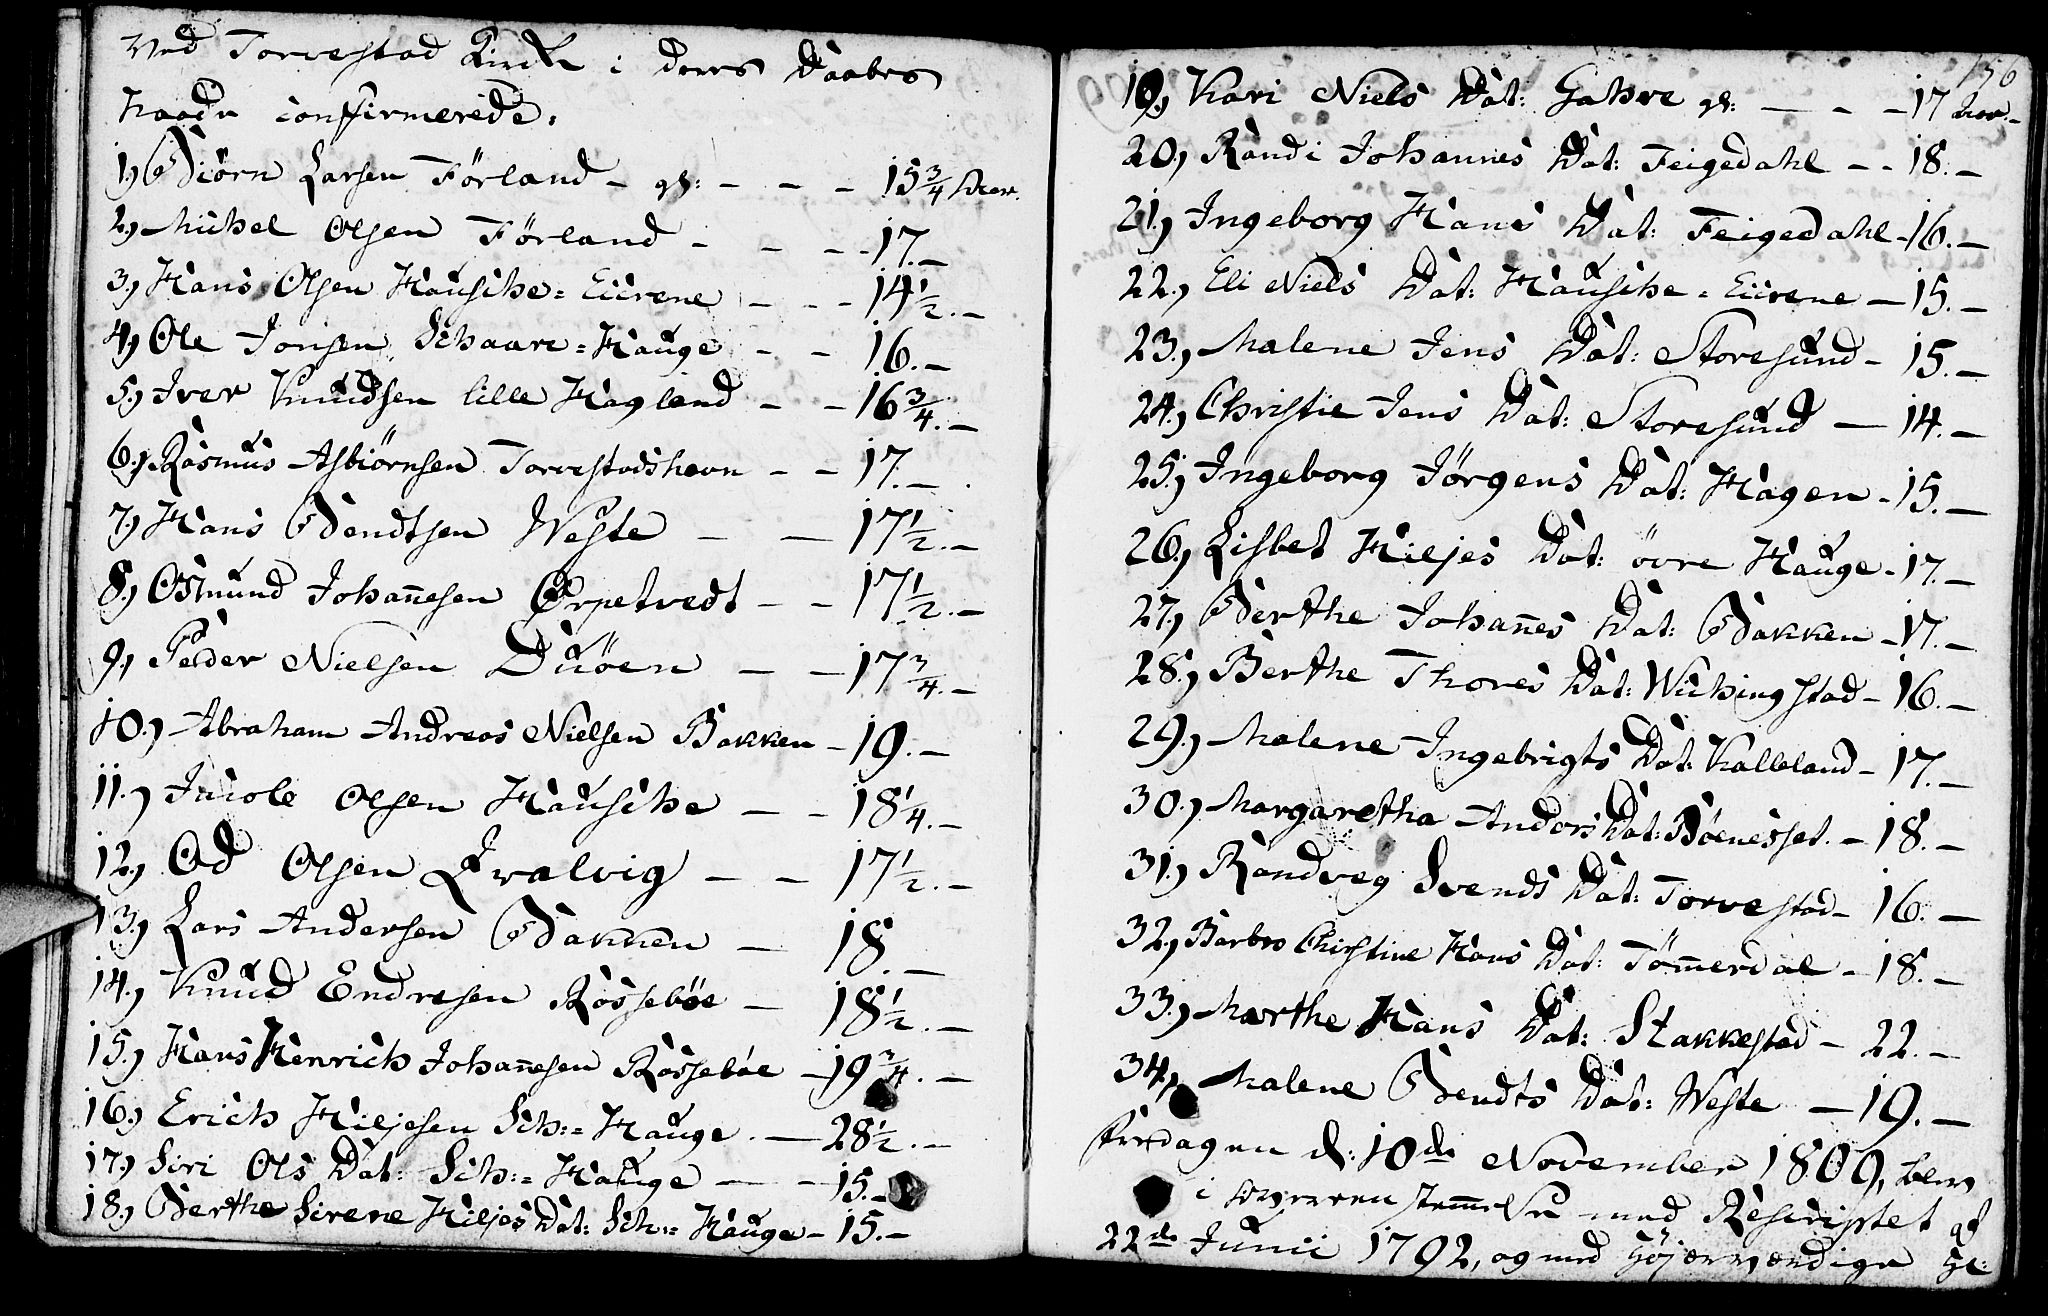 ved Torvestad Kirke i deres Daabes
Naade confirmerede.
1., Biörn Larsen Förland - gl: - - - 15 3/4 Aar.
2., Michel Olsen Förland - - - 17. -
3., Hans Olsen Hausche = Eierene - - - 14 1/2. -
4., Ole Jonsen Schaare = Hauge - - 16. -
5., Iver Knudsen lille Hagland - - 16 3/4. -
6., Rasmus Asbiörnsen Torvestadshevn - - 17. -
7., Hans Bendtsen Weste - - 17 1/2. -
8., Osmund Johan̄esen Ørpetvedt - - 17 1/2. -
9., Peder Nielsen Duöen - - 17 3/4. -
10., Abraham Andreas Nielsen Bakken - 19. -
11., Olsen Hausche - - 18 1/4. -
12., Od Olsen Qvalvig - - 17 1/2. -
13., Lars Andersen Bakken - 18. -
14., Knud Endresen Rossebøe - 18 1/2. -
15., Hans Henrich Johan̄esen Rossebøe - 19 3/4. -
16., Erich Kiljesen Sch: = Hauge. - 28 1/2. -
17., Siri Ols Dat: Sch: = Hauge - - 15. -
18., Berthe Sirene Kiljes Dat: Sch: = Hauge - 15. -
156
19., Kari Niels Dat: Gahre gl: - - - 17 Aar. -
20., Randi Johannes Dat: Feigedahl - - 18. -
21., Ingeborg Hans Dat: Feigedahl - 16. -
22., Eli Niels Dat: Hausche = Eierene - 15. -
23., Malene Jens Dat: Storesund - 15. -
24., Christie Jens Dat: Storesund - 14. -
25., Ingeborg Jörgens Dat: Hagen - 15. -
26., Lisbet Kiljes Dat: övre Hauge - 17. -
27., Berthe Johan̄es Dat: Bakken - 17. -
28., Berthe Thores Dat: Wichingstad - 16. -
29., Malene Ingebrigts Dat: Kalleland - 17. -
30., Margaretha Anders Dat: Böenesset. - 18. -
31., Randveg Svends Dat: Torvestad - 16. -
32., Barbro Christine Hans Dat: Töm̄erdal - 18. -
33., Marthe Hans Dat: Stakkestad - 22. -
34., Malene Bendts Dat: Weste - 19. -
Fredagen d: 10de November 1809, blev
i med Rescriptet af
22de Junii 1792, og med Höjærværdige Hr: